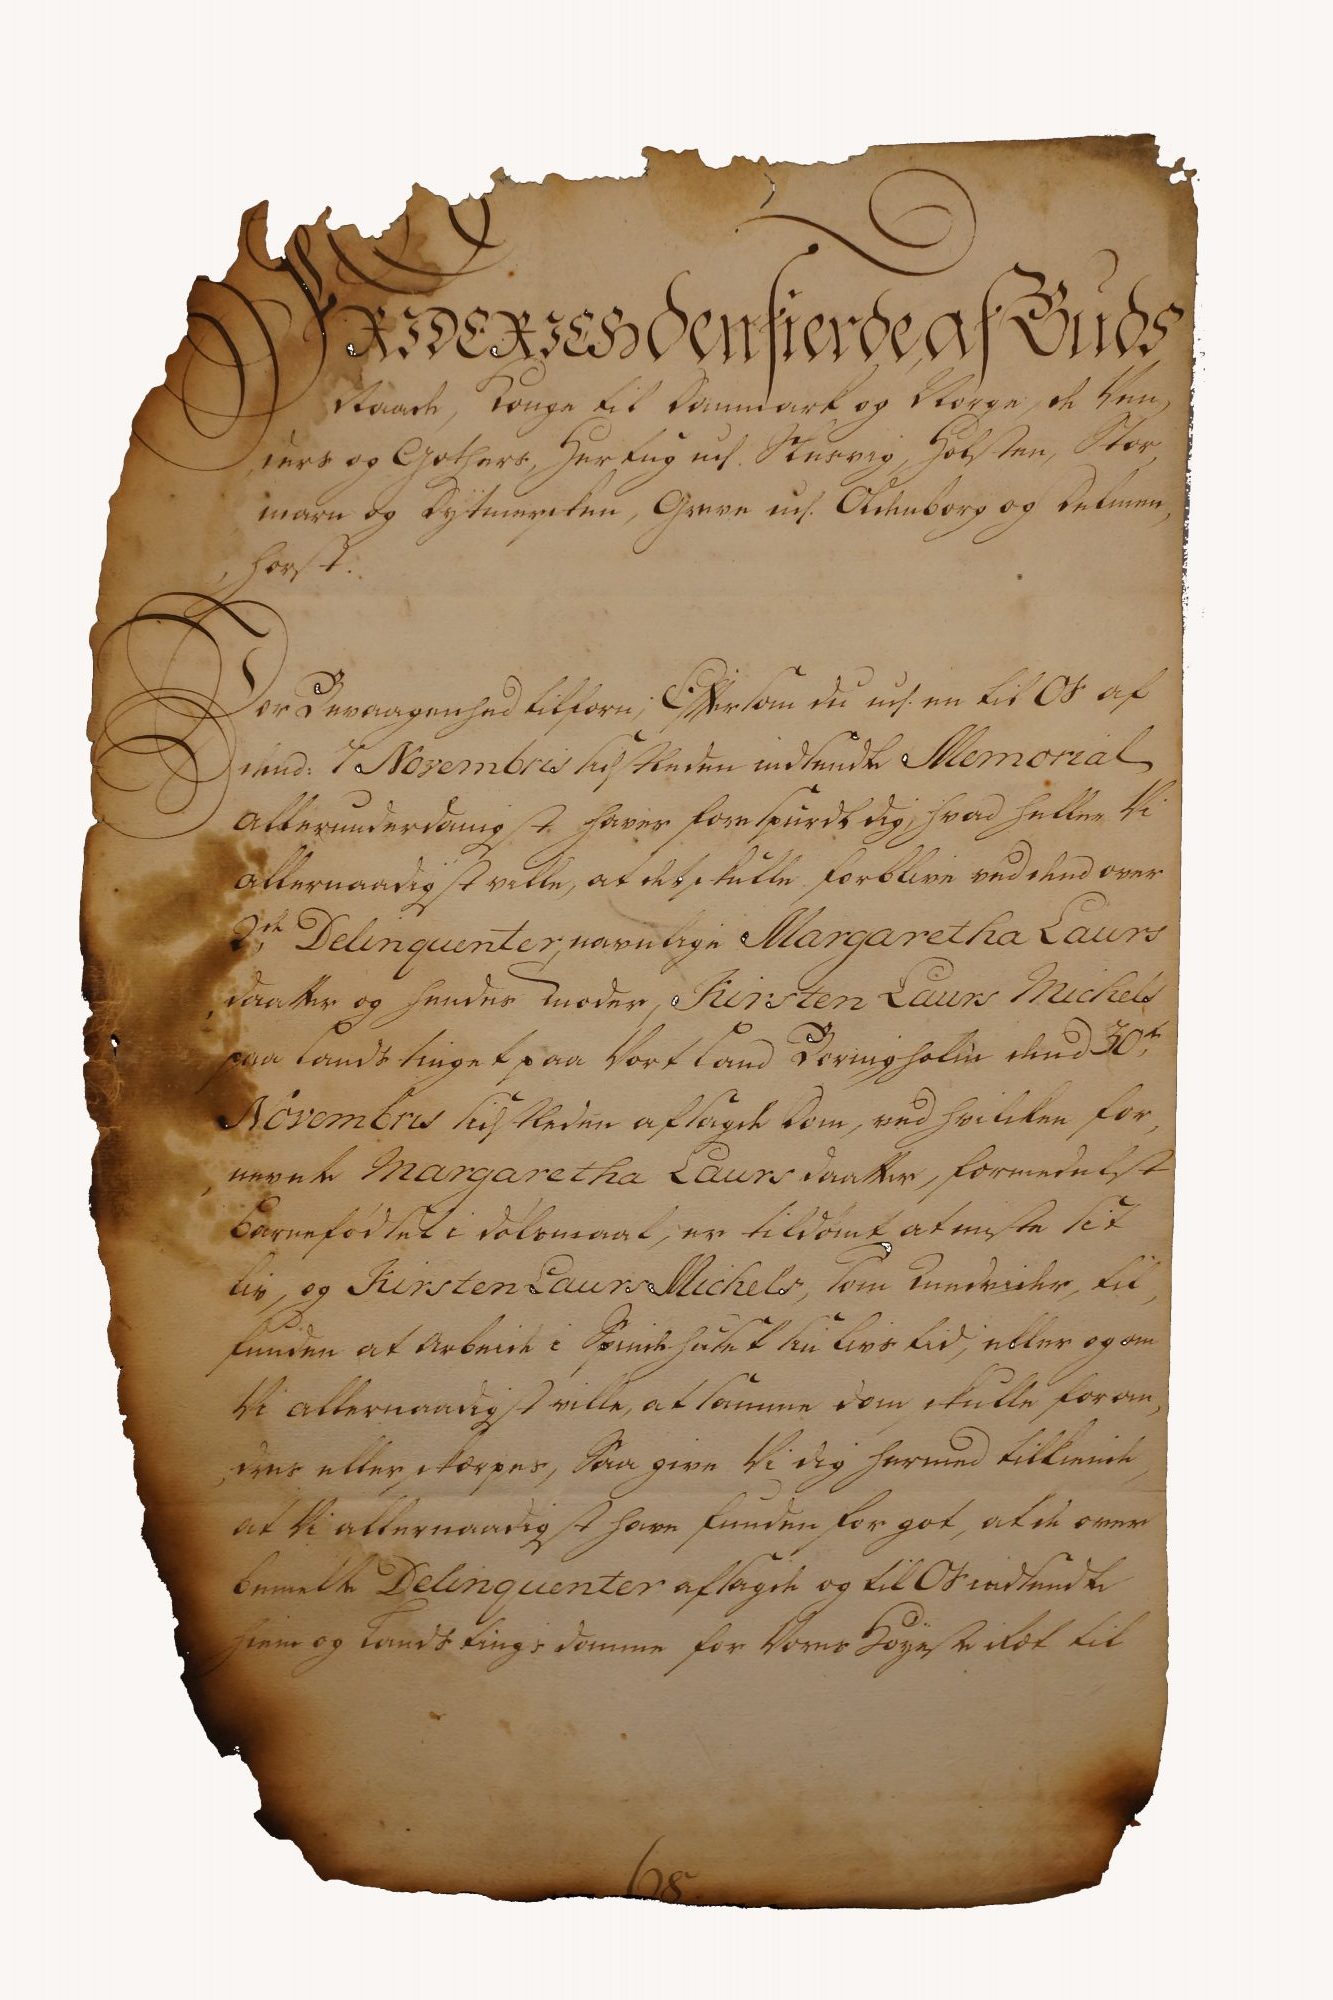 FRIDERICH den fierde, af Guds
Naade, Konge til Danmark og Norge, de Ven,
ders og Gothers, Hertug udj Slesvig, Holsten, Stor,
marn og Dytmersken, Greve udj Oldenborg og Delmen,
horst.
Vor Bevaagenhed tilforn; Eftersom du udj en til Os af
dend: 7 Novembris sidstleden indsendte Memorial
allerunderdanigst haver forespurdt dig, hvad heller Vi
allernaadigst ville, at det skulle forblive ved dend over
2de Delinquenter, navnlige Margaretha Laurs
daatter og hendes moder, Kirsten Laurs Michels
paa Landstinget paa Vort Land Boringholm dend 30te
Novembris sidstleden afsagde dom, ved hvilcken for,
nevnte Margaretha Laurs daatter, formedelst
barnefødsel i dølsmaal, er tildømt at miste sit
liv, og Kirsten Laurs Michels, som medvider, til,
funden at arbeide i Spindehuset sin livs tid, eller og om
Vi allernaadigst ville, at samme dom skulle foran,
dres eller skerpes, Saa give Vi dig hermed tilkiende,
at Vi allernaadigst have funden for got, at de over
bemelte Delinquenter afsagde og til Os indsendte
Hiem og Landstings domme for Vores Høyeste Ret til
68